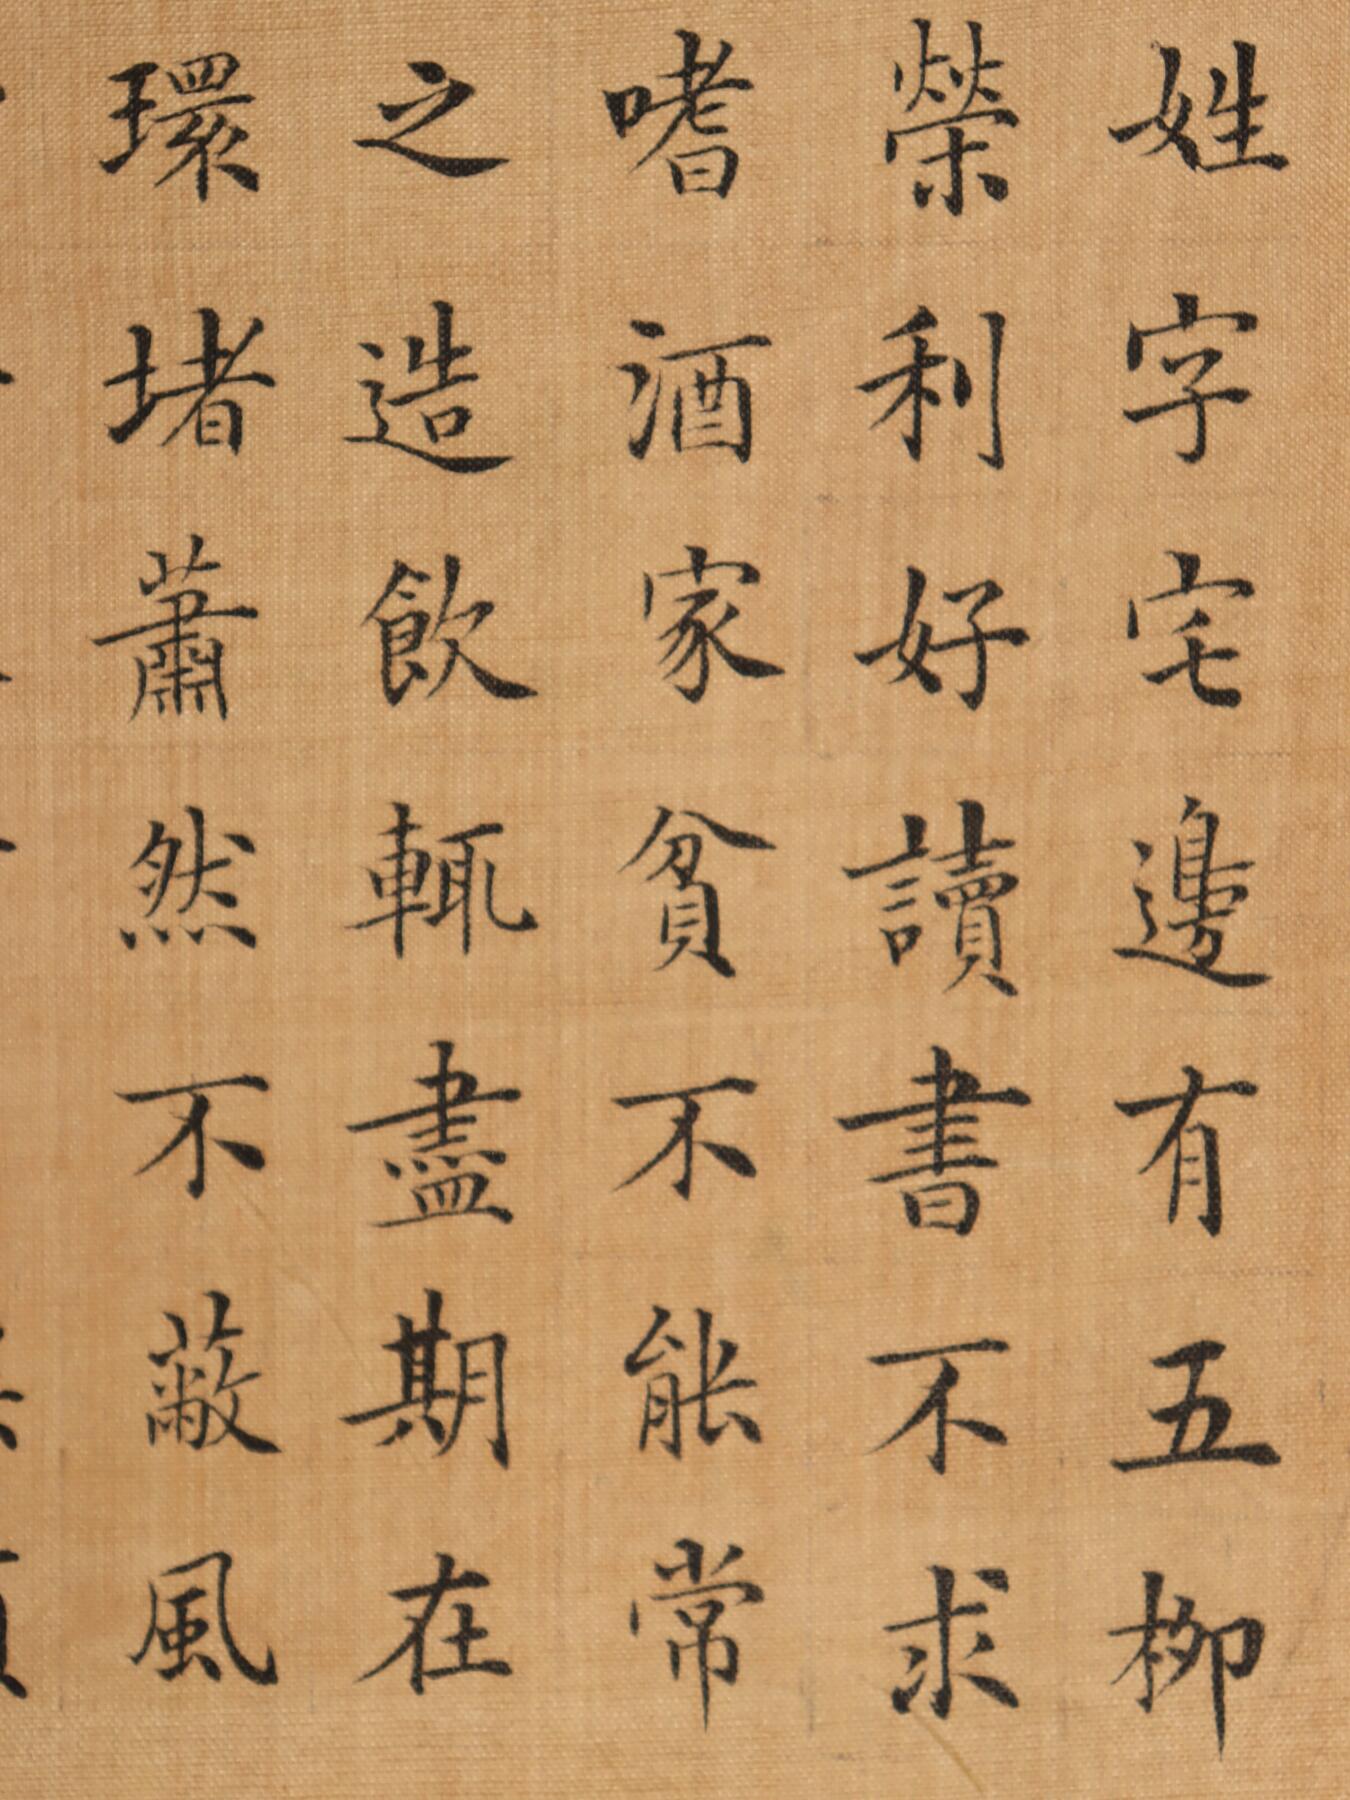 姓字宅邊有五柳
榮利好讀書不求
嗜酒家貧不能常
之造飲輒盡期在
環堵蕭然不蔽風